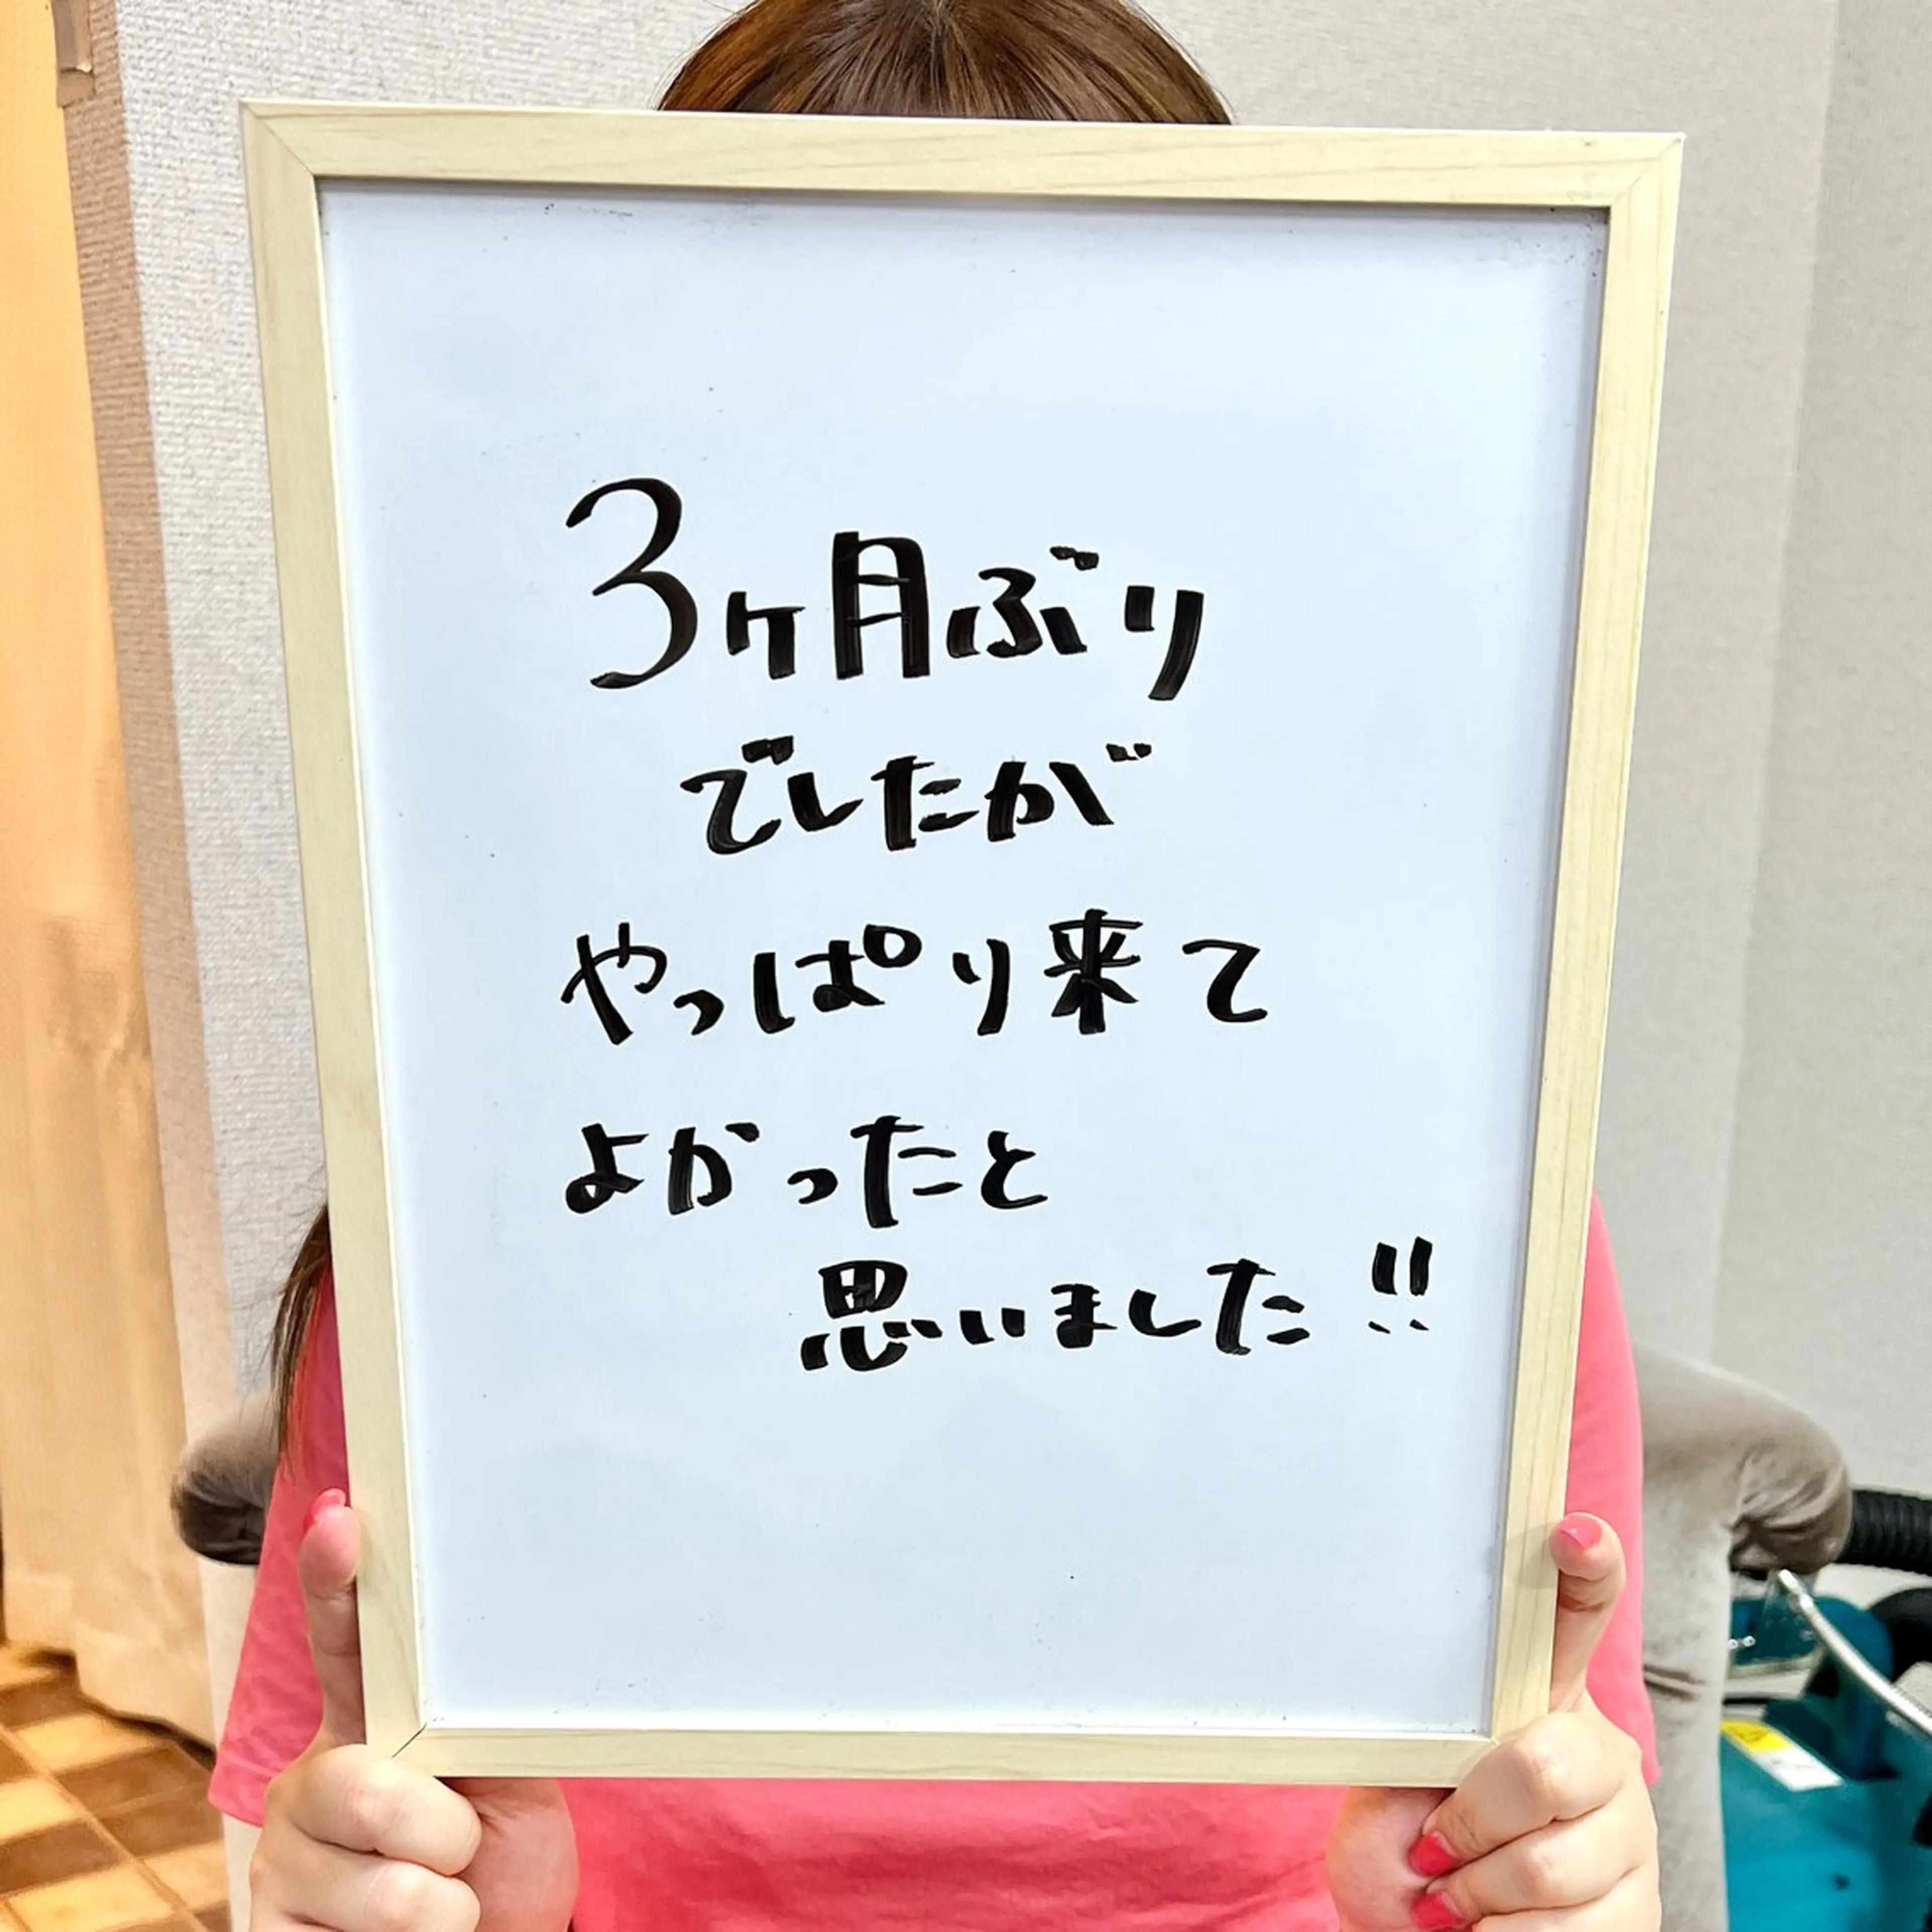 3ヶ月ぶり
でしたが
やっぱり来て
よかったと
思いました!!